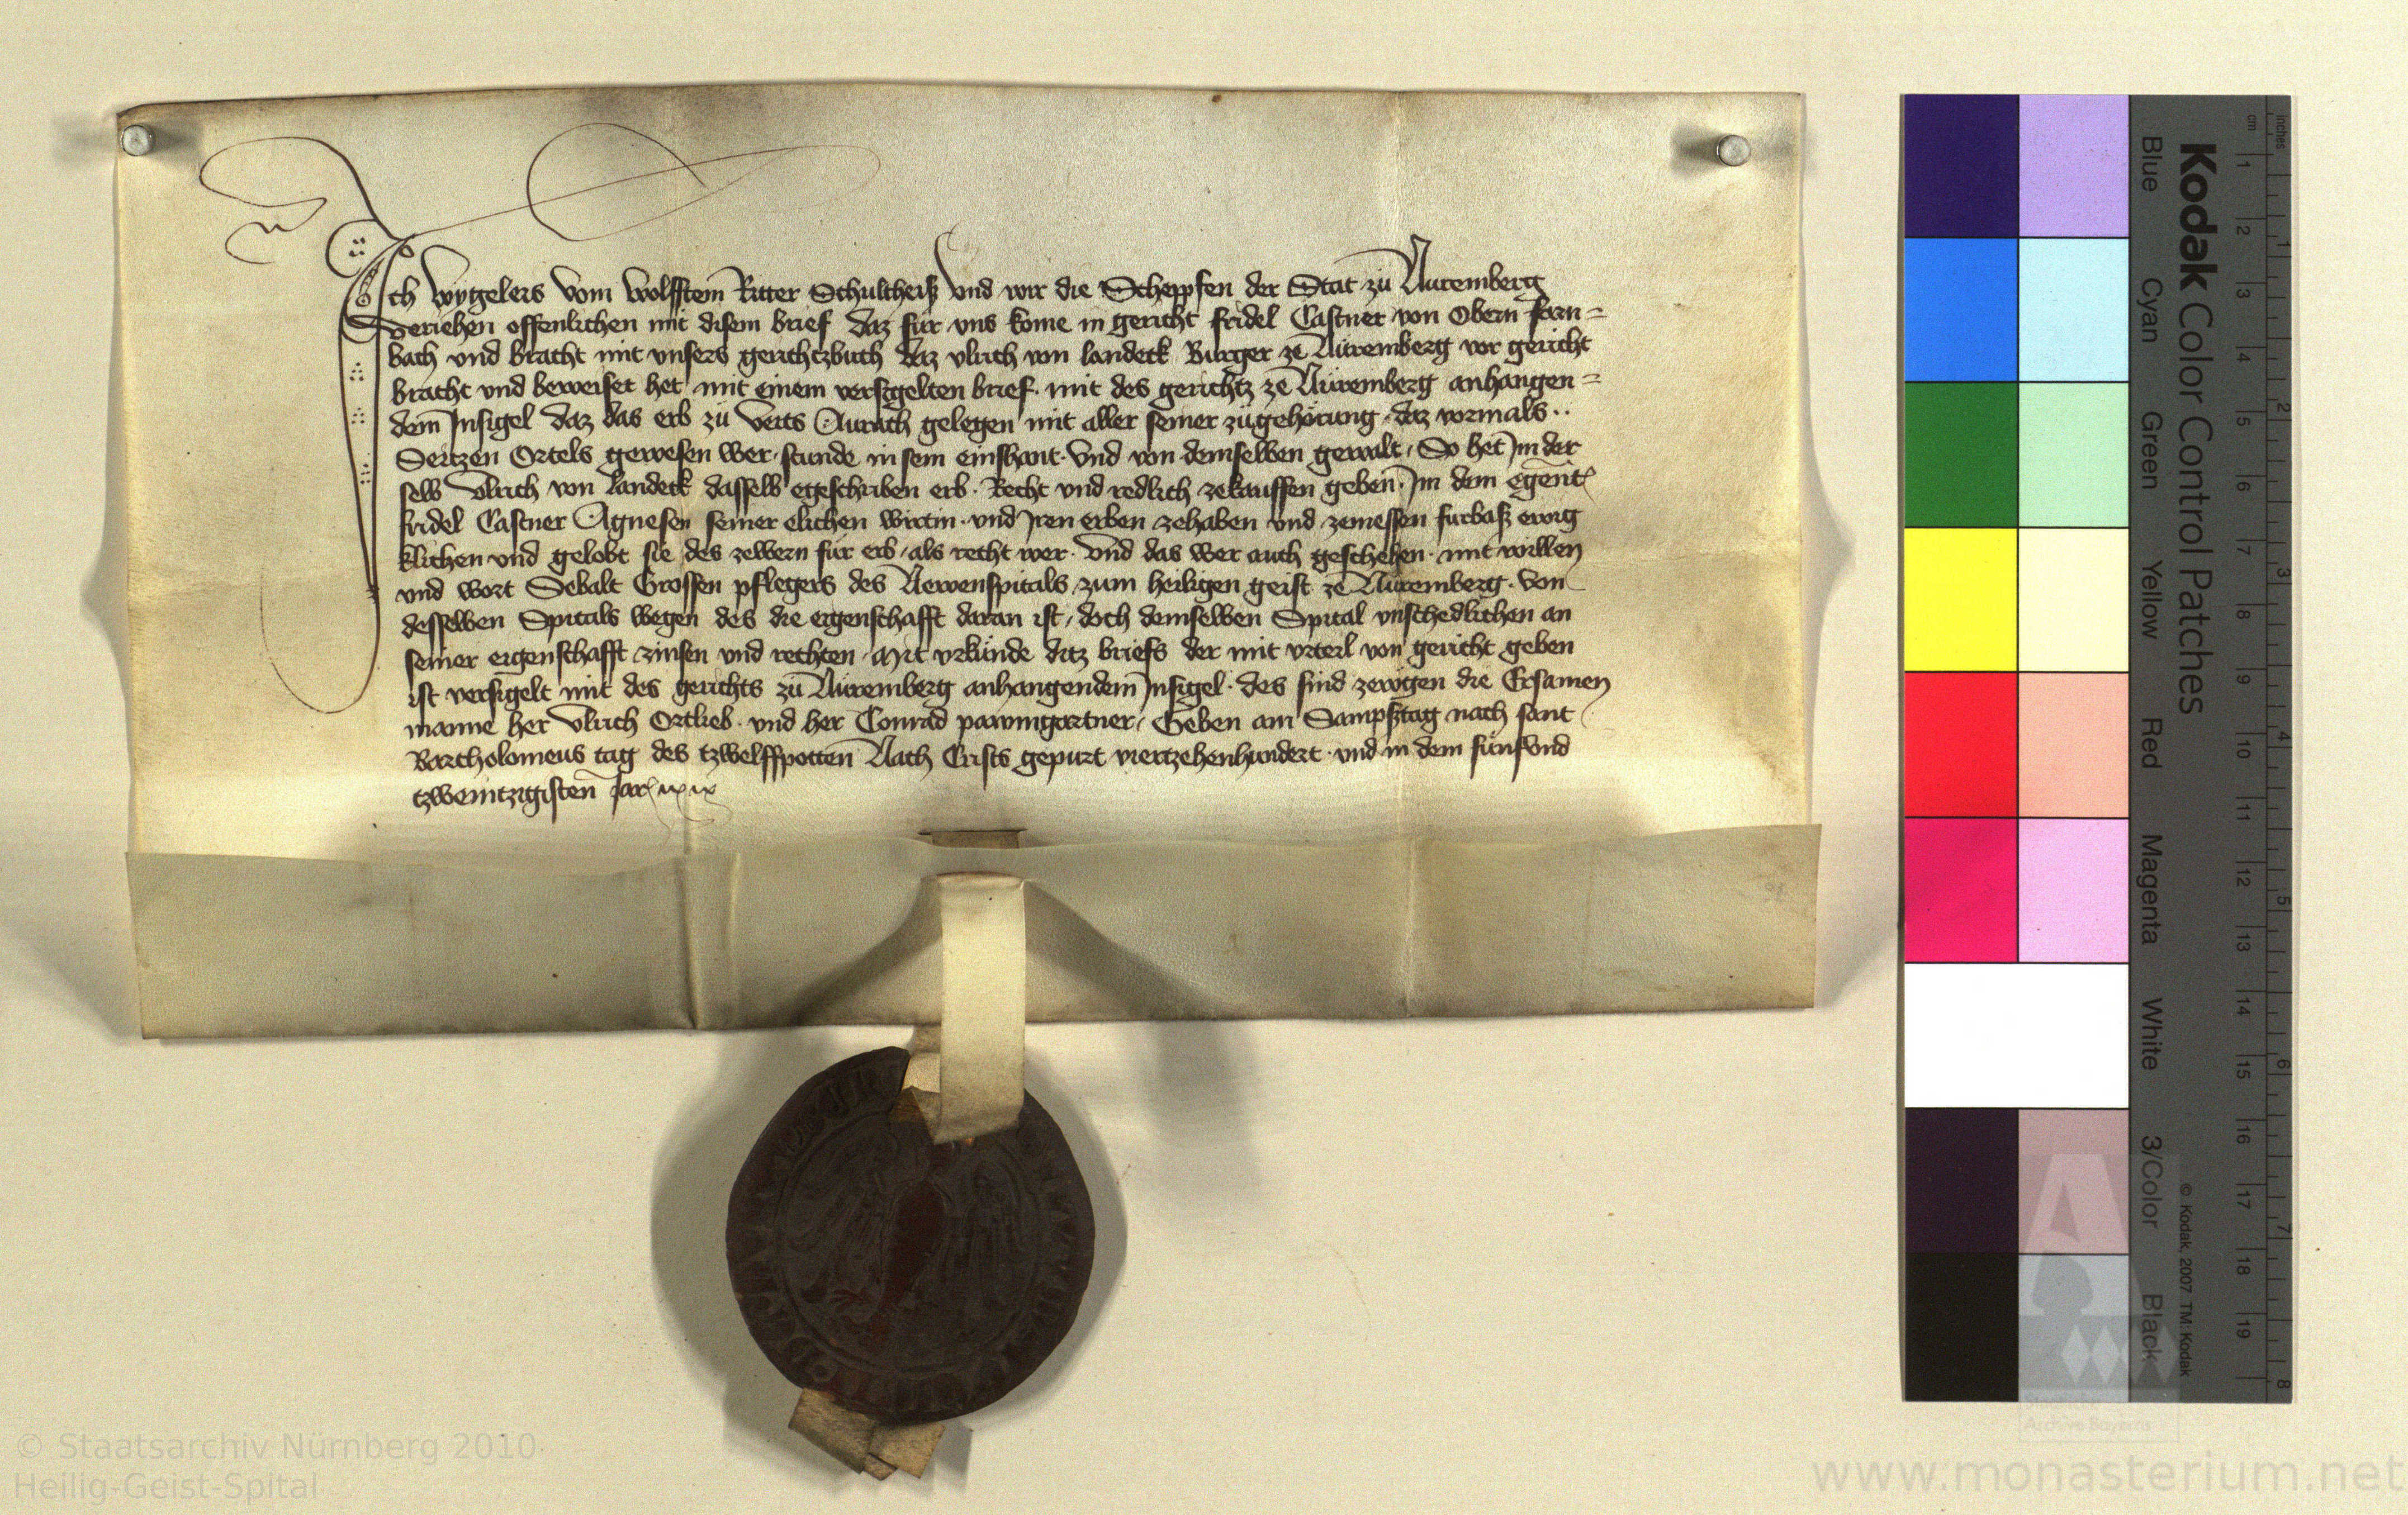 Ich Wygeleis vom Wolffstein Ritter Schultheiß Und wir die Scheppfen der Stat zü Nuremberg
Veriehen offenlichen mit disem brief daz für vns kome in gericht fridel Castner von Obern farn=
bach vnd bracht mit vnsers gerichtzbuch daz vlrich von landeck Burger ze Nüremberg vor gericht
bracht vnd beweiset het mit einem versigelten brief mit des gerichtz ze Nüremberg anhangen=
dem Insigel daz das erb zü Veits Aurach gelegen mit aller seiner zügehörung daz vormals
Seitzen Ortels gewesen wer stunde in sein einshant Vnd von demselben gewalt So het Im der
selb Vlrich von Landeck dasselb egeschriben erb Recht vnd redlich zekauffen geben Im dem egent
fridel Castner Agnesen seiner elichen wirtin vnd Iren erben zehaben vnd zeniessen furbaß ewig
klichen vnd gelobt sie des zewern für erb als recht wer Vnd das wer auch geschehen mit willen
vnd wort Sebalt Grossen pflegers des Newenspitals zum heiligen geist ze Nüremberg Von
desselben Spitals wegen des die eigenschafft daran ist doch demselben Spital vnschedlichen an
seiner eigenschafft zinsen vnd rechten Mit vrkünde ditz briefs der mit vrteil von gericht geben
ist versigelt mit des gerichts zü Nüremberg anhangendem Insigel des sind zewgen die Ersamen
manne her Vlrich Ortlieb vnd her Conrad pawmgartner Geben am Sampßtag nach sant
Bartholomeus tag des tzwelffpotten Nach Crists gepurt viertzehenhundert vnd in dem fünfvnd
tzweintzigisten Jar
Kodak Color Control Patches
Blue Cyan Green Yellow Red Magenta White 3/Color Black
© Kodak, 2007 TM: Kodak
inches 1 2 3 4 5 6 7 8
cm 1 2 3 4 5 6 7 8 9 10 11 12 13 14 15 16 17 18 19
Archive Bayerns
© Staatsarchiv Nürnberg 2010
Heilig-Geist-Spital
www.monasterium.net